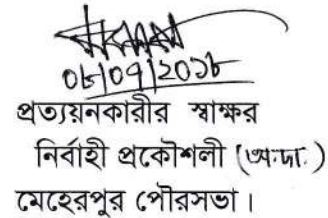 ০৮/০৭/২০১৮
প্রত্যয়নকারীর স্বাক্ষর
নির্বাহী প্রকৌশলী (অঃদাঃ)
মেহেরপুর পৌরসভা।